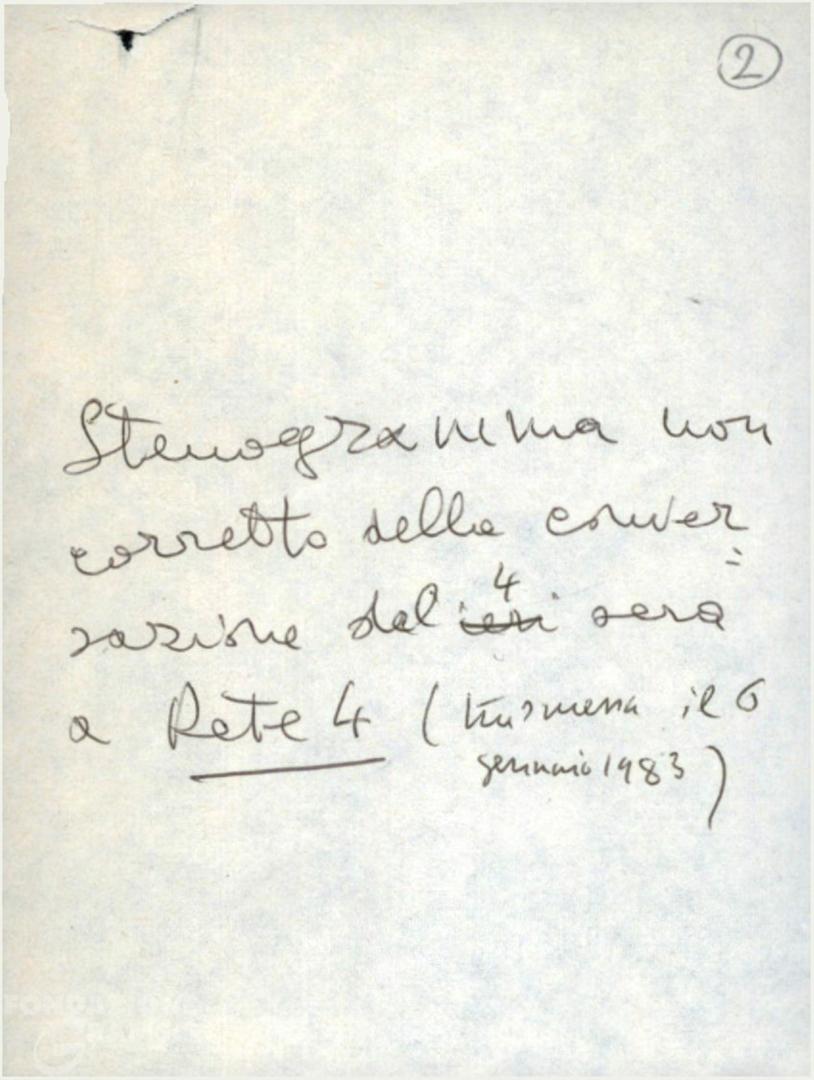 2
Stenogramma non
corretto della conver=
sazione del ieri 4 sera
a Rete 4 (trasmessa il 6
gennaio 1983)